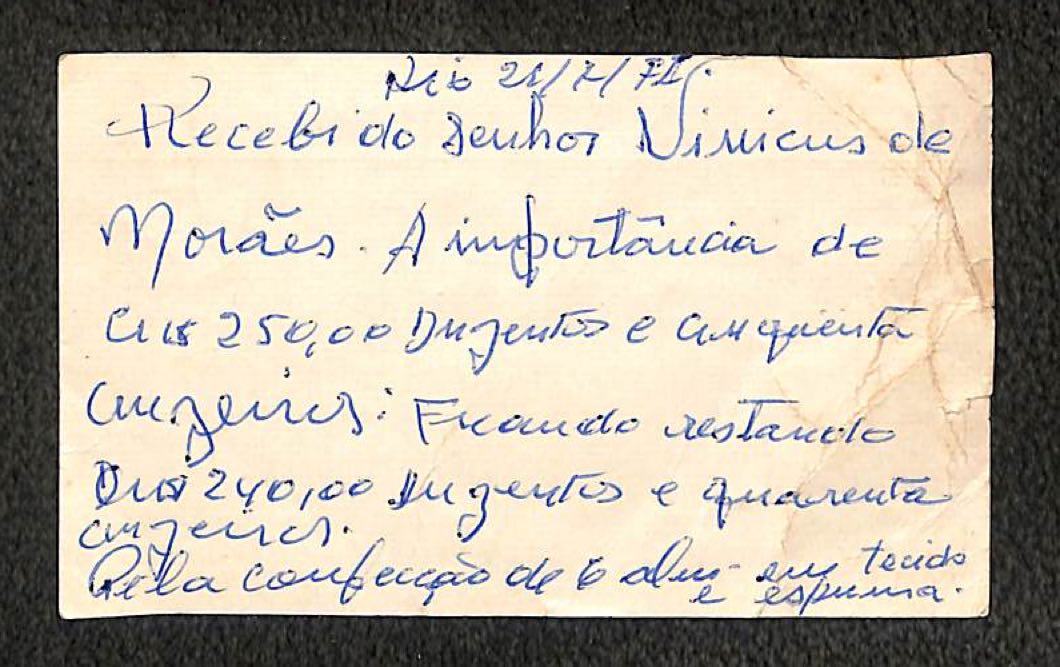 Rio 21/7/71.
Recebi do Senhor Vinicius de
Morães. A importância de
Cr$ 250,00 Duzentos e cinquenta
cruzeiros: Ficando restando
Cr$ 240,00 Duzentos e quarenta
cruzeiros.
Pela confecção de 6 alm- em tecido
e espuma.